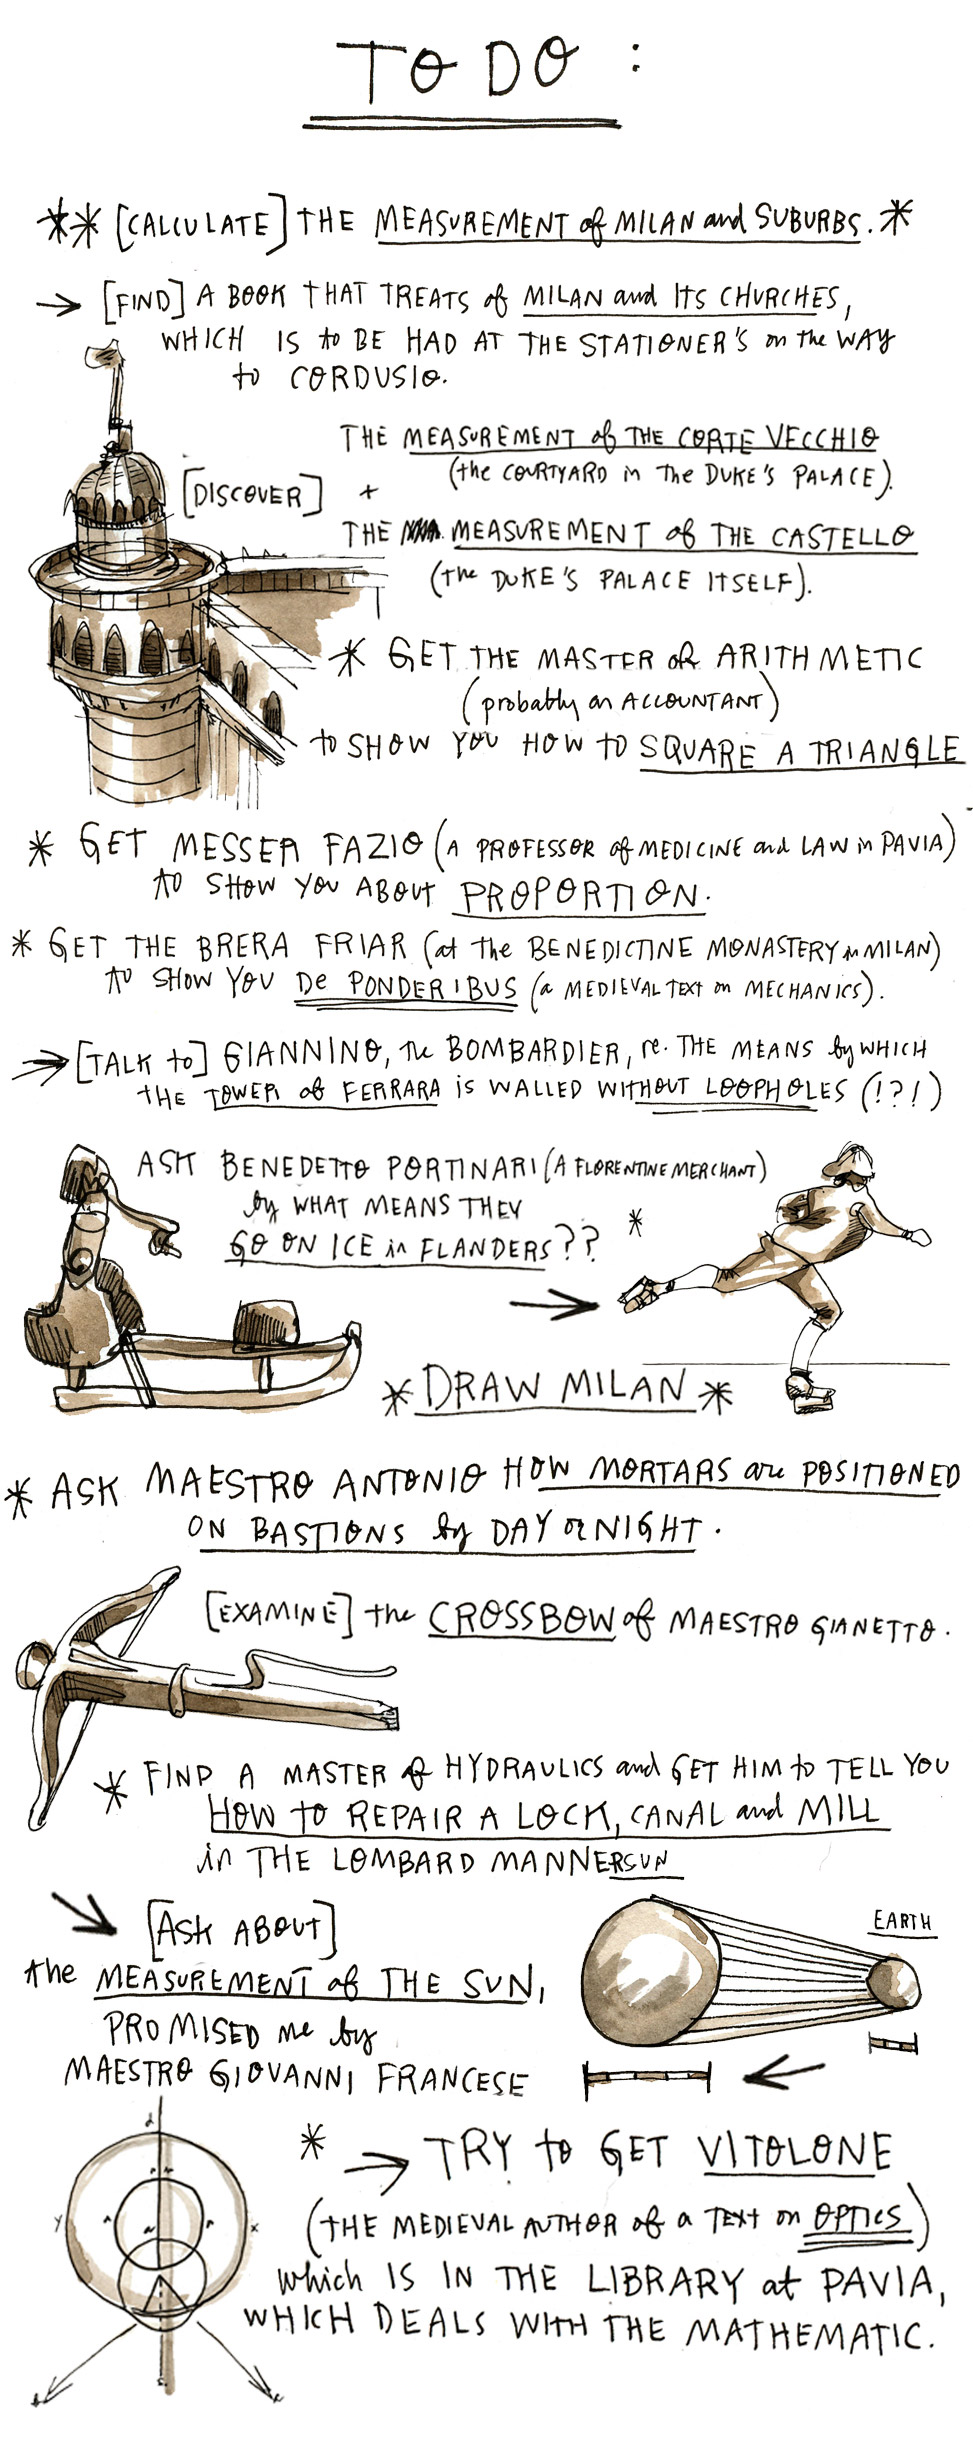 TO DO :
** [CALCULATE] THE MEASUREMENT of MILAN and SUBURBS. *
→ [FIND] A BOOK THAT TREATS of MILAN and ITS CHURCHES,
WHICH IS to BE HAD AT THE STATIONER'S on the WAY
to CORDUSIO.
[DISCOVER]
THE MEASUREMENT of THE CORTE VECCHIO
(the COURTYARD in The DUKE'S PALACE).
+
THE MEASUREMENT of THE CASTELLO
(the DUKE'S PALACE ITSELF).
* GET THE MASTER OF ARITHMETIC
(probably an ACCOUNTANT)
to SHOW YOU HOW to SQUARE A TRIANGLE
* GET MESSER FAZIO (A PROFESSOR of MEDICINE and LAW in PAVIA)
to SHOW YOU ABOUT PROPORTION.
* GET THE BRERA FRIAR (at The BENEDICTINE MONASTERY in MILAN)
to SHOW YOU De PONDERIBUS (a MEDIEVAL TEXT on MECHANICS).
→ [TALK to] GIANNINO, the BOMBARDIER, re. THE MEANS by WHICH
THE TOWER of FERRARA is WALLED WITHOUT LOOPHOLES (!?!)
ASK BENEDETTO PORTINARI (A FLORENTINE MERCHANT)
by WHAT MEANS THEY
GO ON ICE in FLANDERS?? *
→
* DRAW MILAN *
* ASK MAESTRO ANTONIO HOW MORTARS are POSITIONED
ON BASTIONS by DAY or NIGHT.
[EXAMINE] the CROSSBOW of MAESTRO GIANETTO.
* FIND A MASTER of HYDRAULICS and GET HIM to TELL YOU
HOW to REPAIR A LOCK, CANAL and MILL
in THE LOMBARD MANNER
SUN
EARTH
→ [ASK ABOUT]
the MEASUREMENT of THE SUN,
PROMISED me by
MAESTRO GIOVANNI FRANCESE
* → TRY to GET VITOLONE
(THE MEDIEVAL AUTHOR of a TEXT on OPTICS)
which IS IN THE LIBRARY at PAVIA,
WHICH DEALS WITH THE MATHEMATIC.